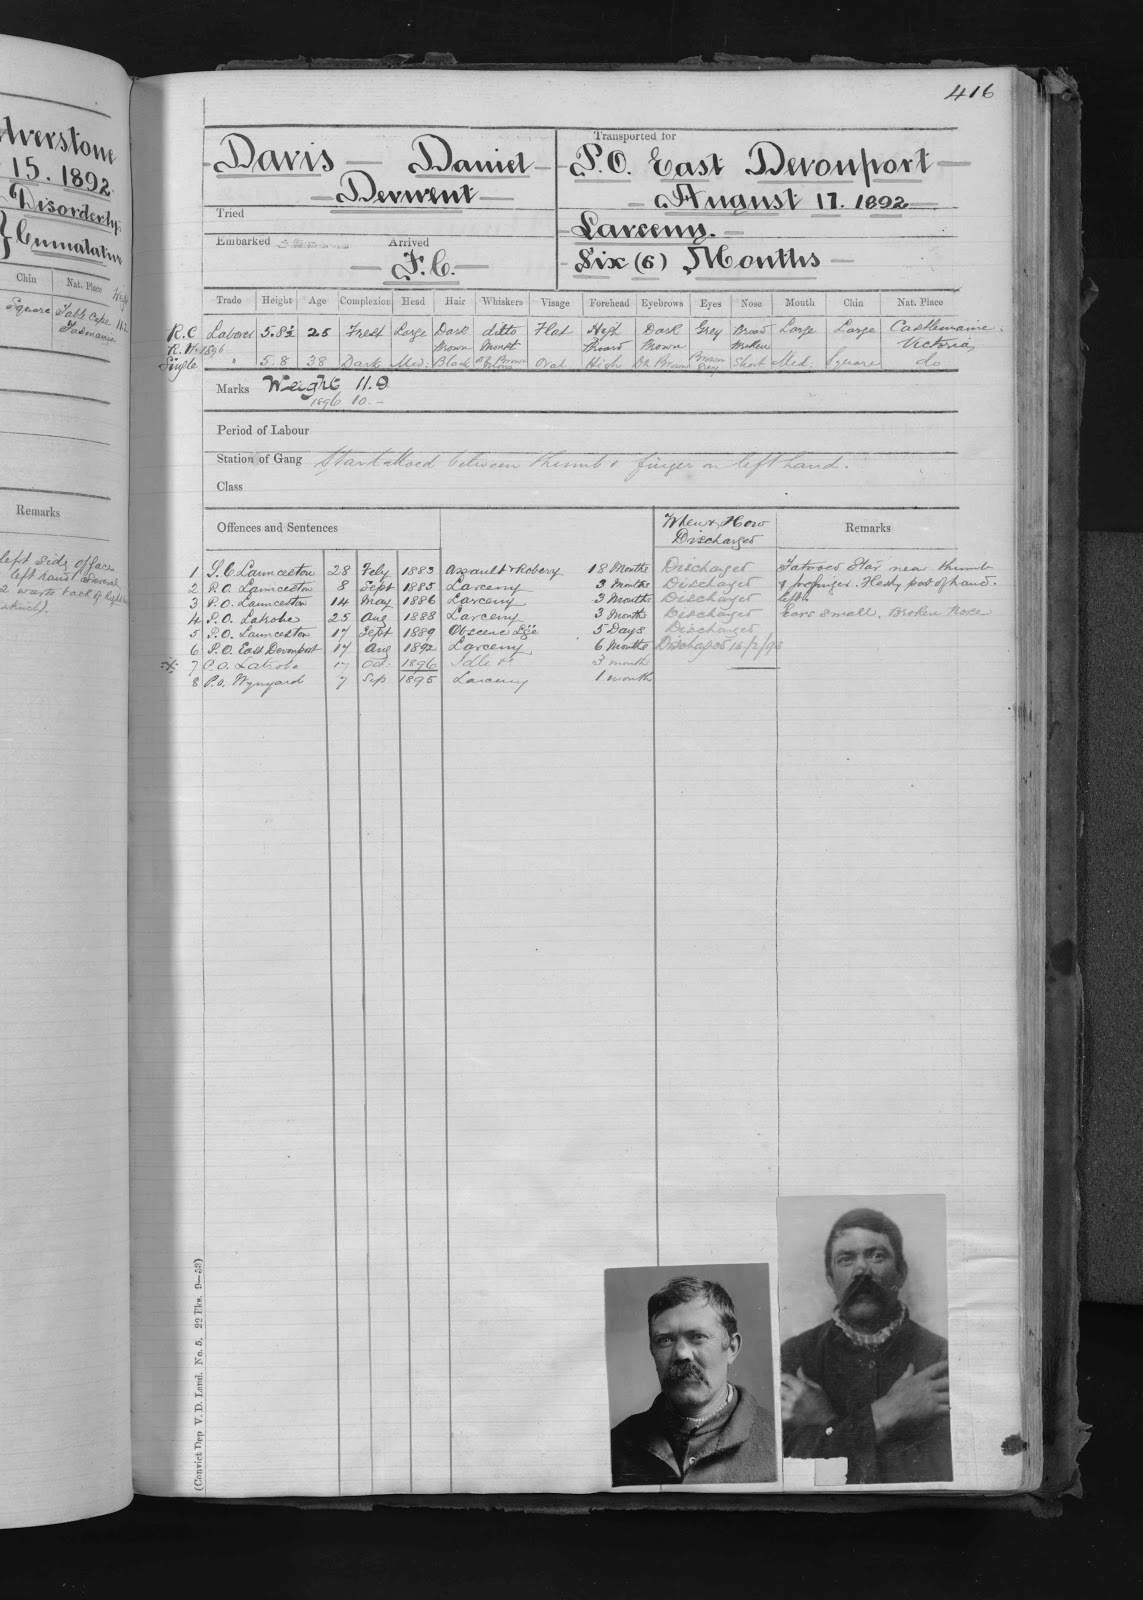 lverstone
15. 1892
Disorderly
} Cumulative
Chin Nat. Place
Square Table Cape
Tasmania
Remarks
left side of face
left hand several
2 warts back of right
416
Davis Daniel
Derwent
Tried
Embarked Arrived
F.C.
Transported for
P.O. East Devonport
August 17. 1892
Larceny.
Six (6) Months
Trade Height Age Complexion Head Hair Whiskers Visage Forehead Eyebrows Eyes Nose Mouth Chin Nat. Place
R.C. Laborer 5.8½ 25 Fresh Large Dark Brown ditto Moust Flat High Broad Dark Brown Grey Broad Broken Large Large Castlemaine Victoria
R. W. 1896
Single " 5.8 38 Dark Med: Black Oval High Dk Brown Brown Grey Short Med. Square do
Marks Weight 11.9
1896 10. -
Period of Labour
Station of Gang Star tattooed between thumb & finger on left hand.
Class
Offences and Sentences When & How Discharged Remarks
1 S.C. Launceston 28 Feby 1883 Assault & Robery 18 Months Discharged Tatooed Star near thumb
2 P.O. Launceston 8 Sept 1885 Larceny 3 Months Discharged & forefinger. Fleshy part of hand.
3 P.O. Launceston 14 May 1886 Larceny 3 Months Discharged left.
4 P.O. Latrobe 25 Aug 1888 Larceny 3 Months Discharged Ears small. Broken Nose
5 P.O. Launceston 17 Sept 1889 Obscene Lge 5 Days Discharged
6 P.O. East Devonport 17 Aug 1892 Larceny 6 Months Discharged 16/2/93
7 P.O. Latrobe 17 Oct: 1896 Idle &c 3 months
8 P.O. Wynyard 7 Sep 1895 Larceny 1 month
(Convict Dep V. D. Land. No. 5. 22 Bks. 9—53)